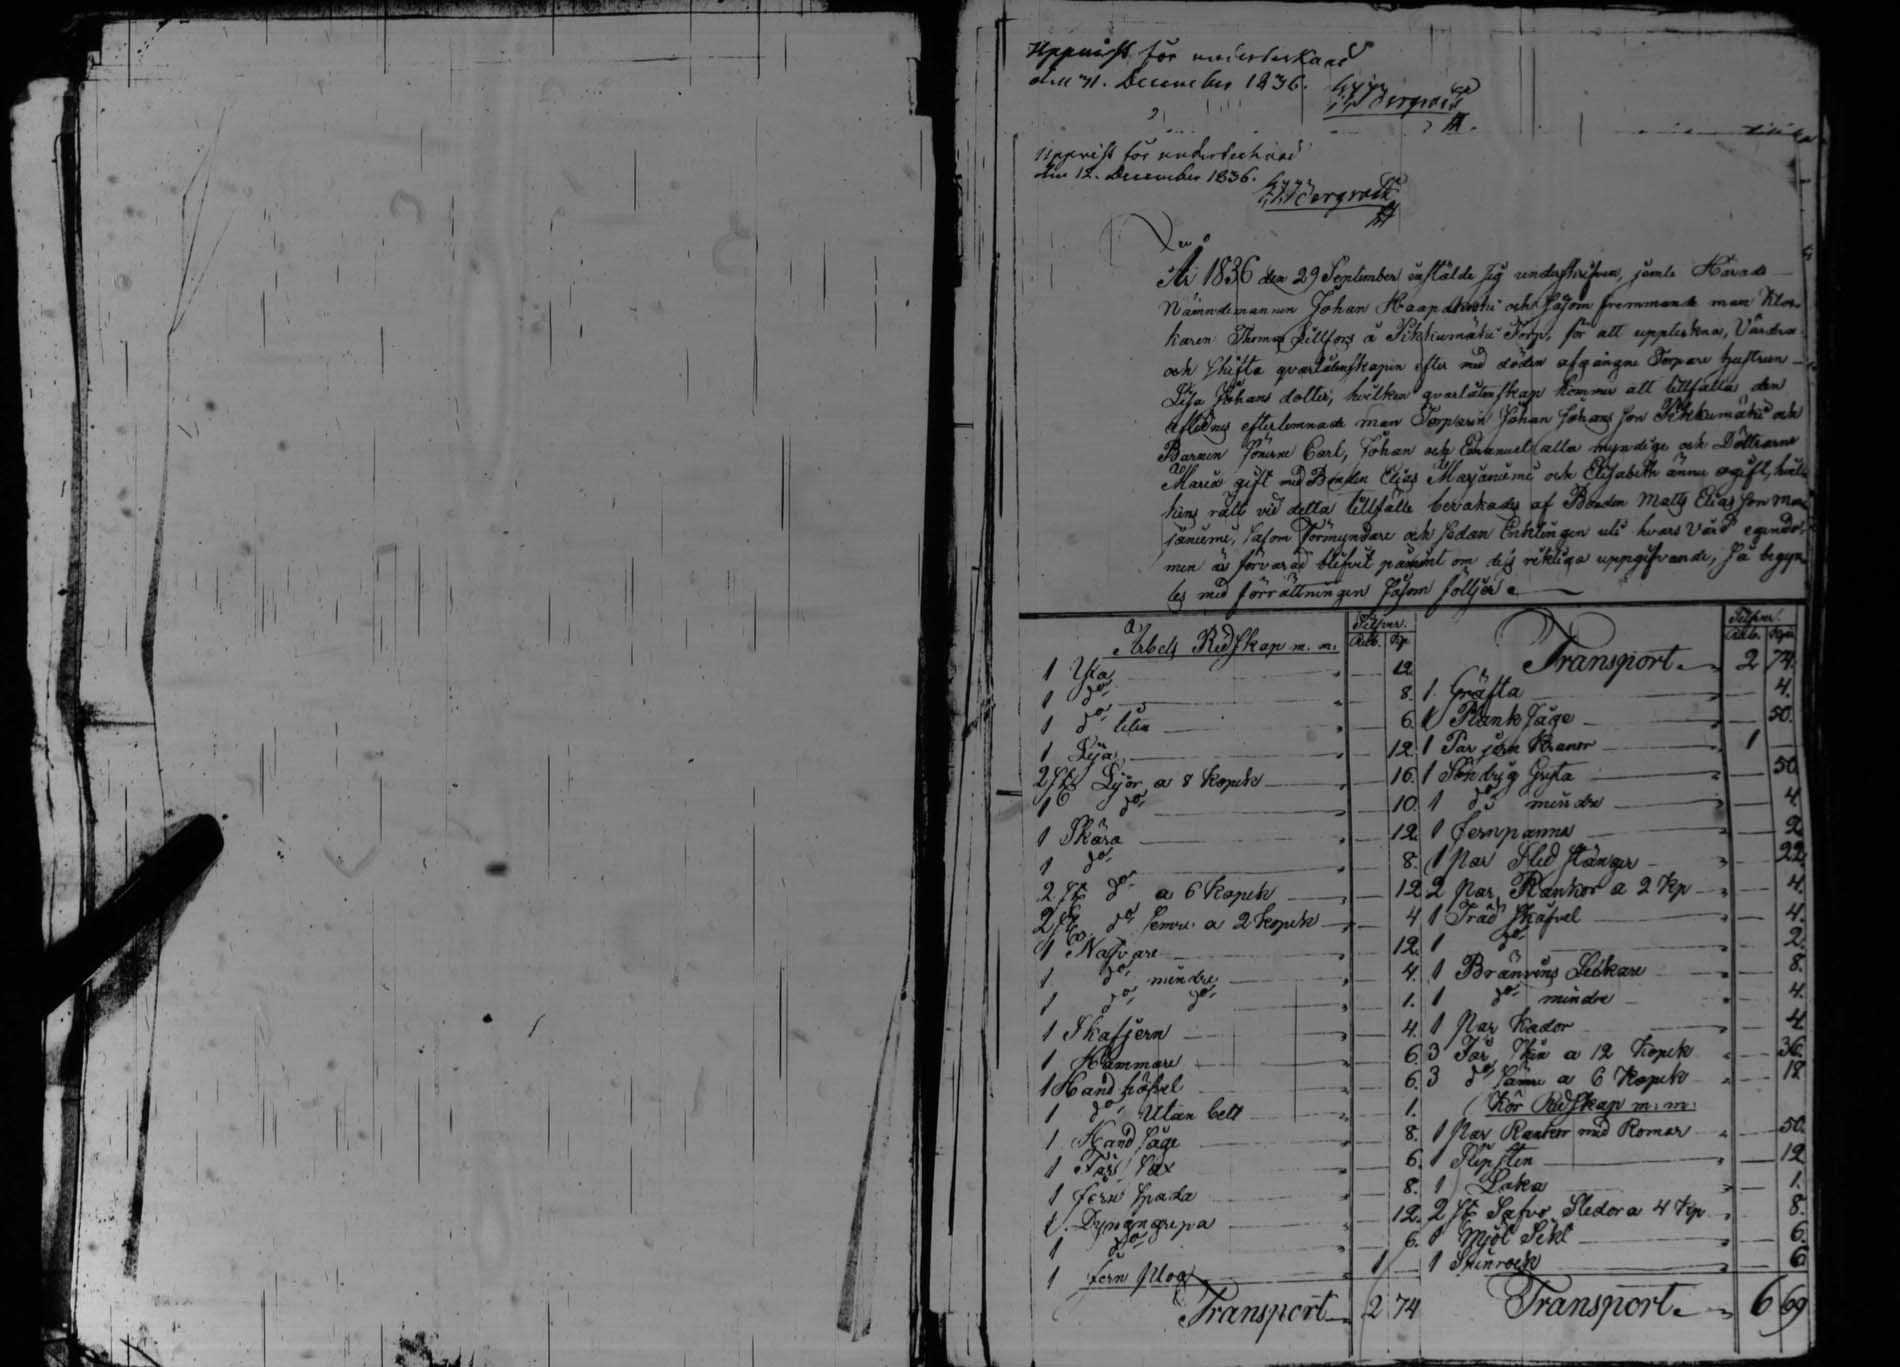 Uppvist för underteknad
den 31. December 1836.
Uppvist för underteknad
den 12. December 1836.
År 1836 den 29 September instälde Jag underskrifven, jemte Härads
Nämndemannen Johan Haapaniemi och såsom fremmande man Kloc-
karen Thomas Lillfors å Torp, för att uppteckna, Värdra
och Skifta qvarlåtenskapen efter med döden afgångne Torpare hustrun
Lisa Johans dotter, hvilken qvarlåtenskap kommer att tillfalla den
aflednes efterlemnade man Torparen Johan Johans son och
Barnen Sönerne Carl, Johan och Emanuel alla myndige och Döttrarne
Maria gift med Bonden Elias Marjaniemi och Elisabeth ännu ogift, hvil-
kens rätt vid detta tillfälle bevakades af Bonden Matts Elias son Mar-
janiemi, såsom Förmyndare och sedan Enklingen uti hvars Vård egendo-
men är förvarad blifvit påmint om dess riktiga uppgifvande, så begyn-
tes med förrättningen såsom följer
Arbets Redskap m. m. Silfver.
Rub. Kp.
1 Yxa 12
1 do 8.
1 do liten 6
1 Lija 12
2 st Lijor a 8 Kopek 16.
1 do 10
1 Skära 12
1 do 8.
2 st do a 6 Kopek 12
2 st do semre a 2 Kopek 4
1 Nafvare 12.
1 do mindre 4.
1 do do 1.
1 Skafjern 4
1 Hammare 6
1 Hand höfvel 6.
1 do Utan bett 1.
1 Hand såge 8.
1 Får sax 6.
1 Jern Spada 8.
1 Dyngngrepa 12.
1 do 6.
1 Jern Plog 1
Transport 2 74
Silfver.
Rub. Kop.
Transport 2 74.
1 Gräfta 4.
1 Plank såge 50.
1 Par jern Kranor 1
1 Gryta 50
1 do mindre 4
1 Jernpanna 2
1 Par Släd stänger 22
2 Par Rankor a 2 Kp 4.
1 Träd Skåfvel 4.
1 do 2.
1 Bränvins Leikare 8.
1 do mindre 4.
1 Par Kador 4
3 Får Skin a 12 Kopek 36
3 do sämre a 6 Kopek 18
Kör Redskap m: m:
1 Par Rankor med Romar 50.
1 Slipsten 12
1 Laka 1.
2 st Sledor a 4 Kp 8.
1 Mjöl Sikt 6.
1 Spinrock 6
Transport 6 69